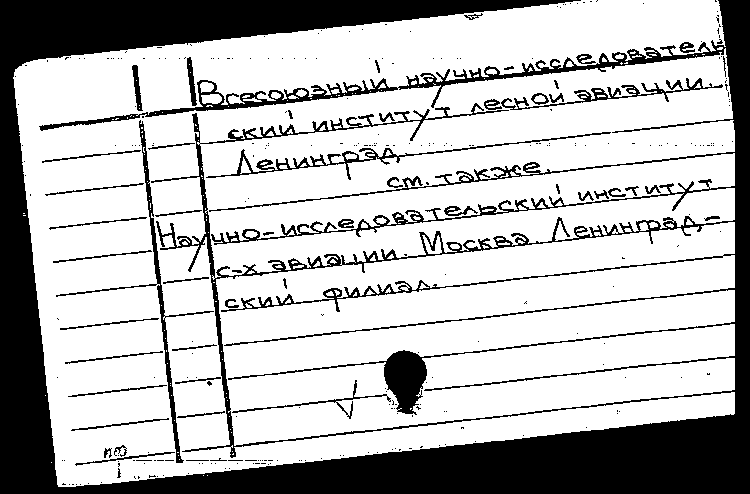 Всесоюзный научно-исследователь
ский институт лесной авиации.
Ленинград
см. также.
Научно-исследовательский институт
с-х. авиации. Москва. Ленинград,-
ский филиал.